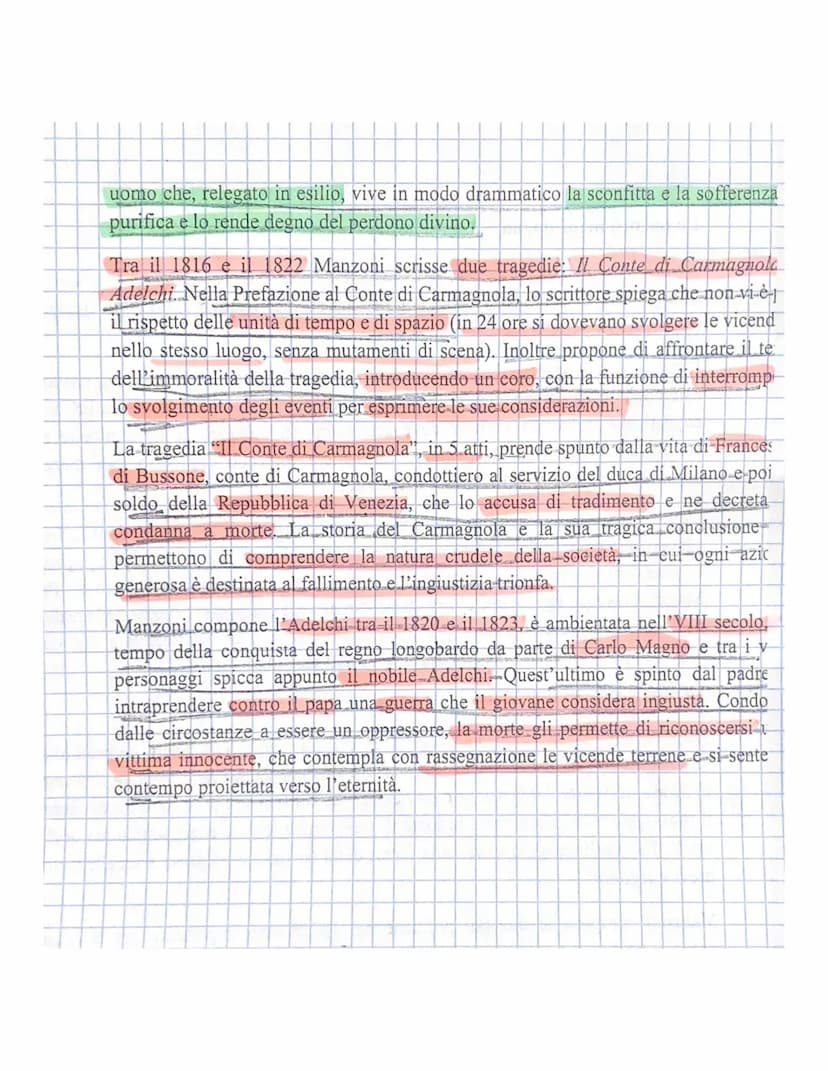 uomo che, relegato in esilio, vive in modo drammatico la sconfitta e la sofferenza
purifica e lo rende degno del perdono divino.
Tra il 1816 e il 1822 Manzoni scrisse due tragedie: Il Conte di Carmagnola
Adelchi. Nella Prefazione al Conte di Carmagnola, lo scrittore spiega che non vi è
il rispetto delle unità di tempo e di spazio (in 24 ore si dovevano svolgere le vicend
nello stesso luogo, senza mutamenti di scena). Inoltre propone di affrontare il te
dell'immoralità della tragedia, introducendo un coro, con la funzione di interromp
lo svolgimento degli eventi per esprimere le sue considerazioni.
La tragedia "Il Conte di Carmagnola", in 5 atti, prende spunto dalla vita di Frances
di Bussone, conte di Carmagnola, condottiero al servizio del duca di Milano e poi
soldo della Repubblica di Venezia, che lo accusa di tradimento e ne decreta
condanna a morte. La storia del Carmagnola e la sua tragica conclusione
permettono di comprendere la natura crudele della società, in cui ogni azio
generosa è destinata al fallimento e l'ingiustizia trionfa.
Manzoni compone l'Adelchi tra il 1820 e il 1823, è ambientata nell'VIII secolo,
tempo della conquista del regno longobardo da parte di Carlo Magno e tra i v
personaggi spicca appunto il nobile Adelchi. Quest'ultimo è spinto dal padre
intraprendere contro il papa una guerra che il giovane considera ingiusta. Condo
dalle circostanze a essere un oppressore, la morte gli permette di riconoscersi
vittima innocente, che contempla con rassegnazione le vicende terrene e si sente
contempo proiettata verso l'eternità.